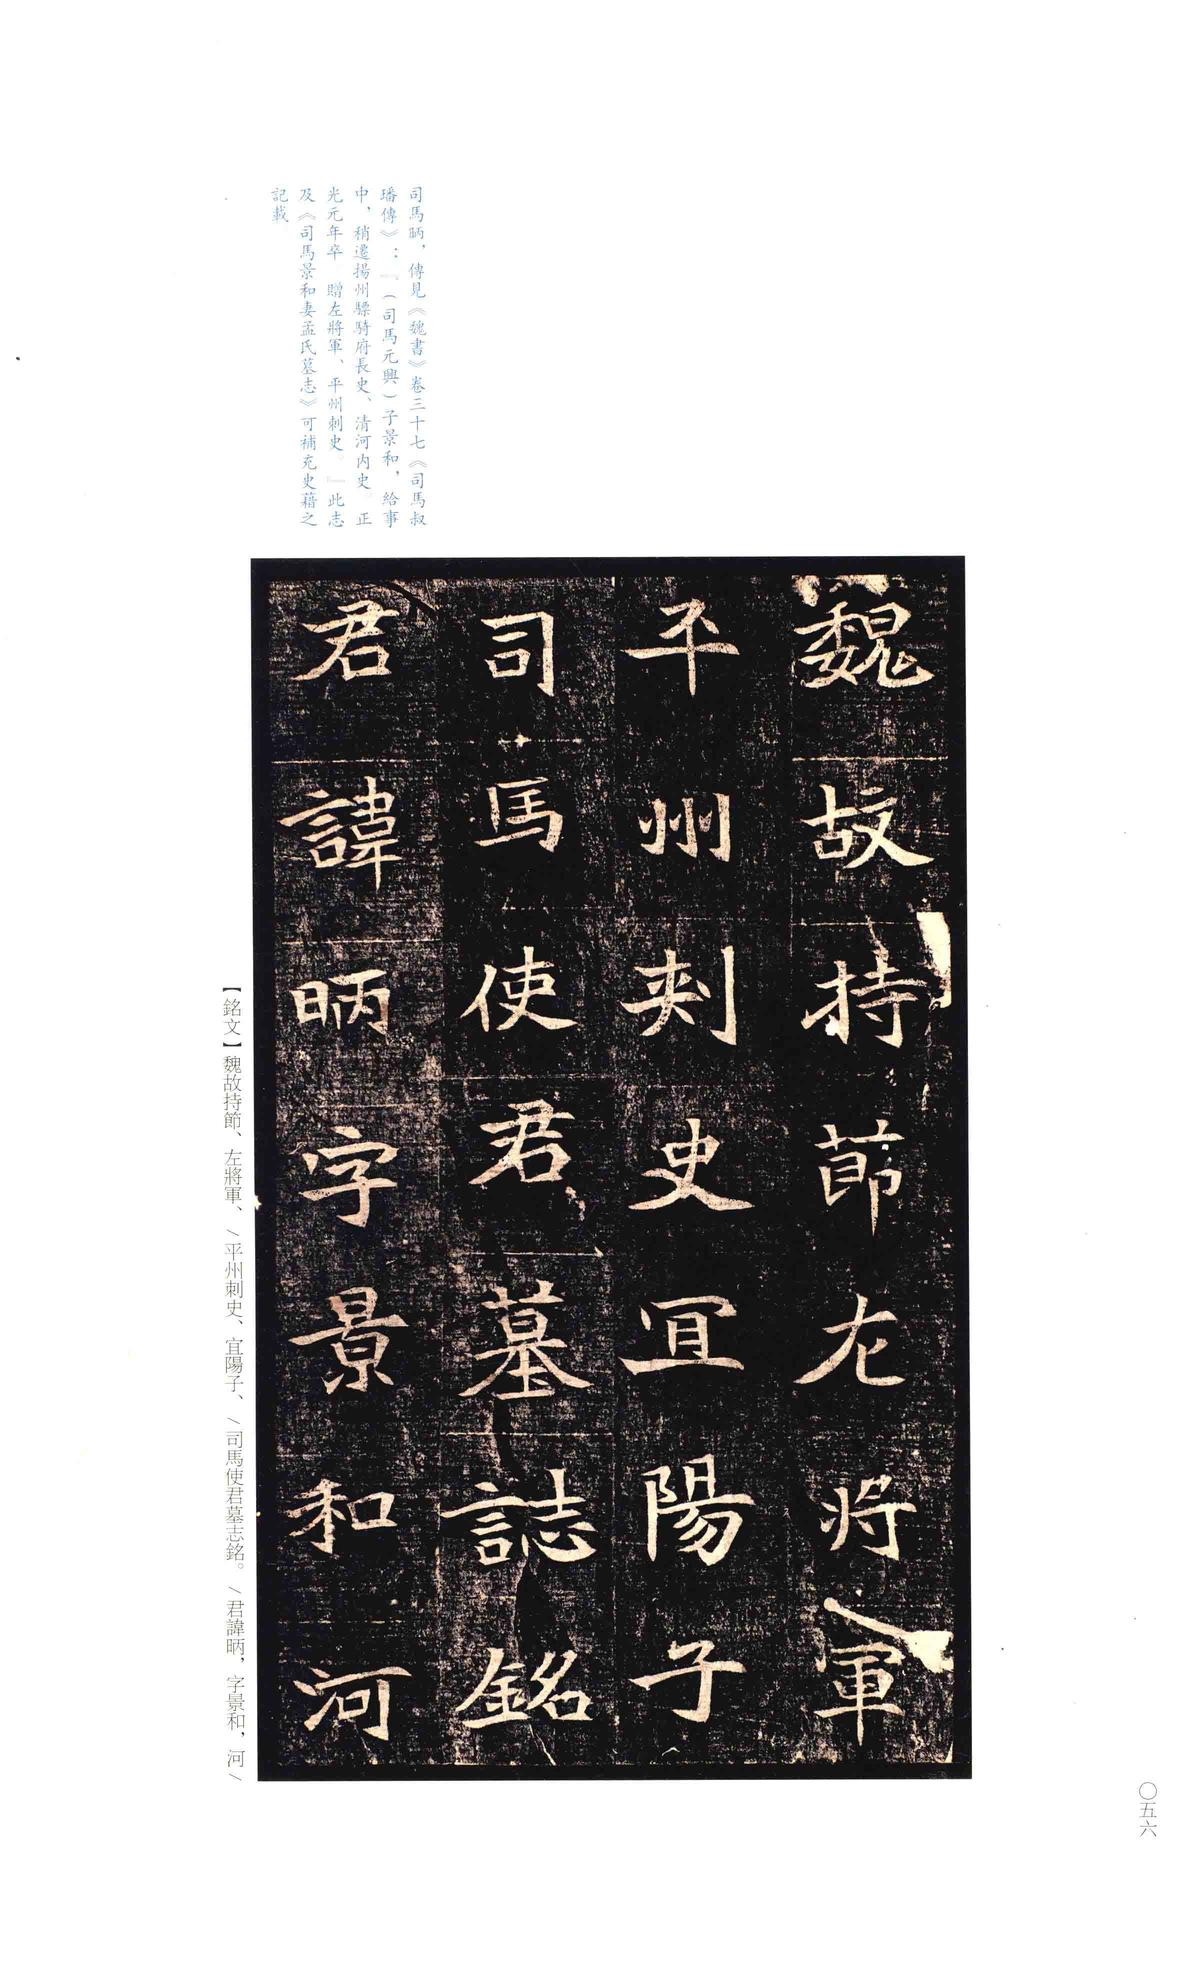 司馬昞，傳見《魏書》卷三十七《司馬叔
璠傳》：『（司馬元興）子景和，給事
中，稍遷揚州驃騎府長史、清河内史。正
光元年卒。贈左將軍、平州刺史。』此志
及《司馬景和妻孟氏墓志》可補充史藉之
記載。
魏故持節左將軍
平州刺史宜陽子
司馬使君墓誌銘
君諱昞字景和河
【銘文】魏故持節、左將軍、/平州刺史、宜陽子、/司馬使君墓志銘。/君諱昞，字景和，河/
〇五六